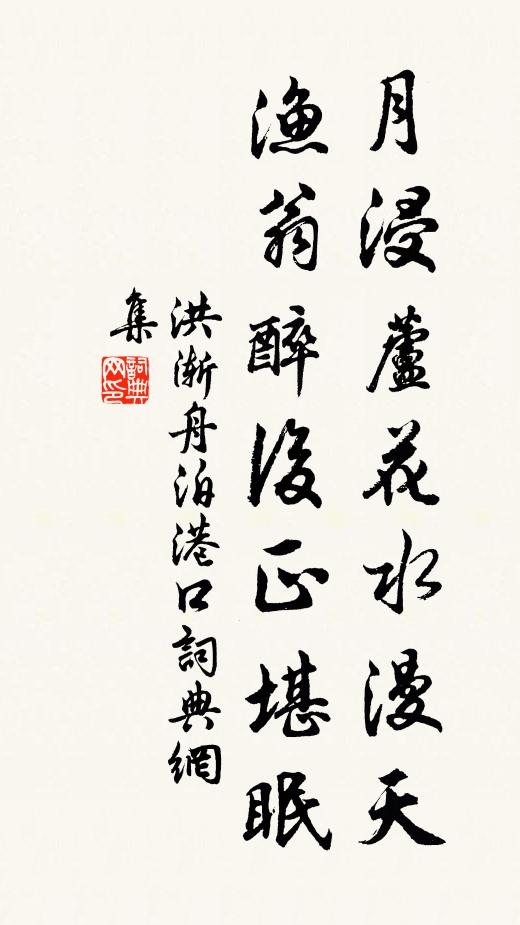 月浸蘆花水漫天
漁翁醉後正堪眠
洪漸舟泊港口詞典網
集
詞典网印